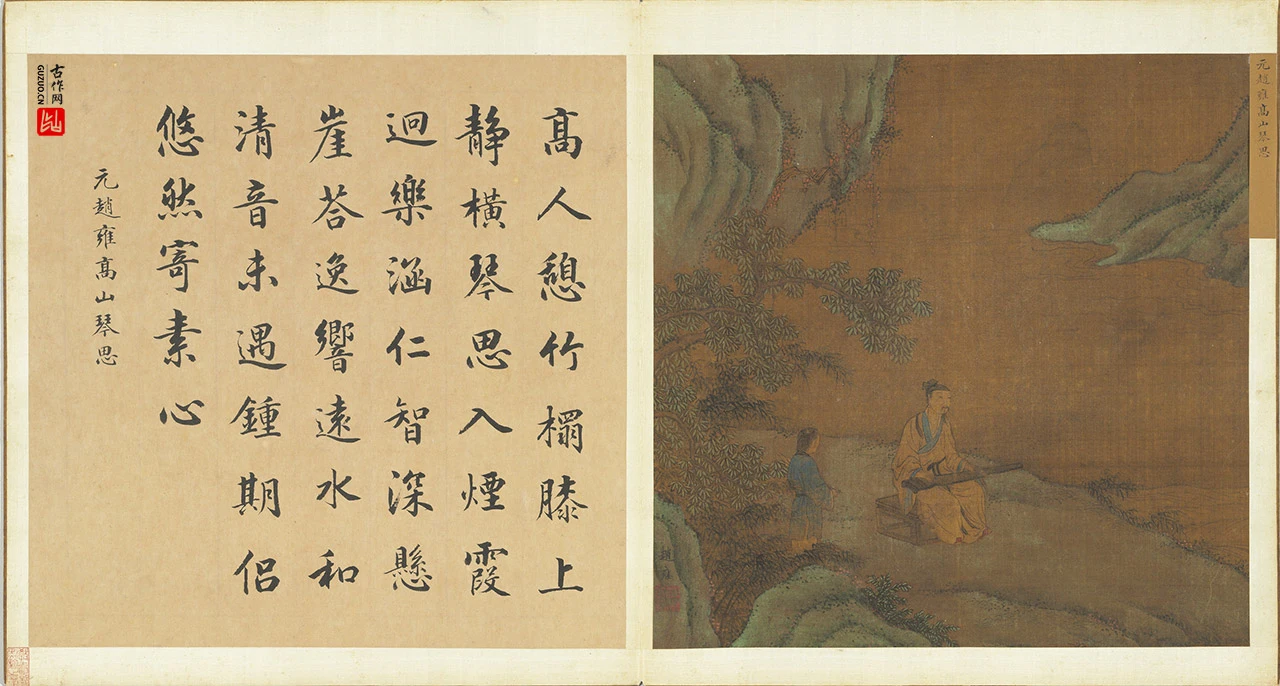 元趙雍髙山琴思
髙人憩竹榻膝上
静橫琴思入煙霞
逈樂涵仁智深懸
崖荅逸響遠水和
清音未遇鍾期侶
悠然寄素心
元趙雍髙山琴思
古作网
GUZUO.CN